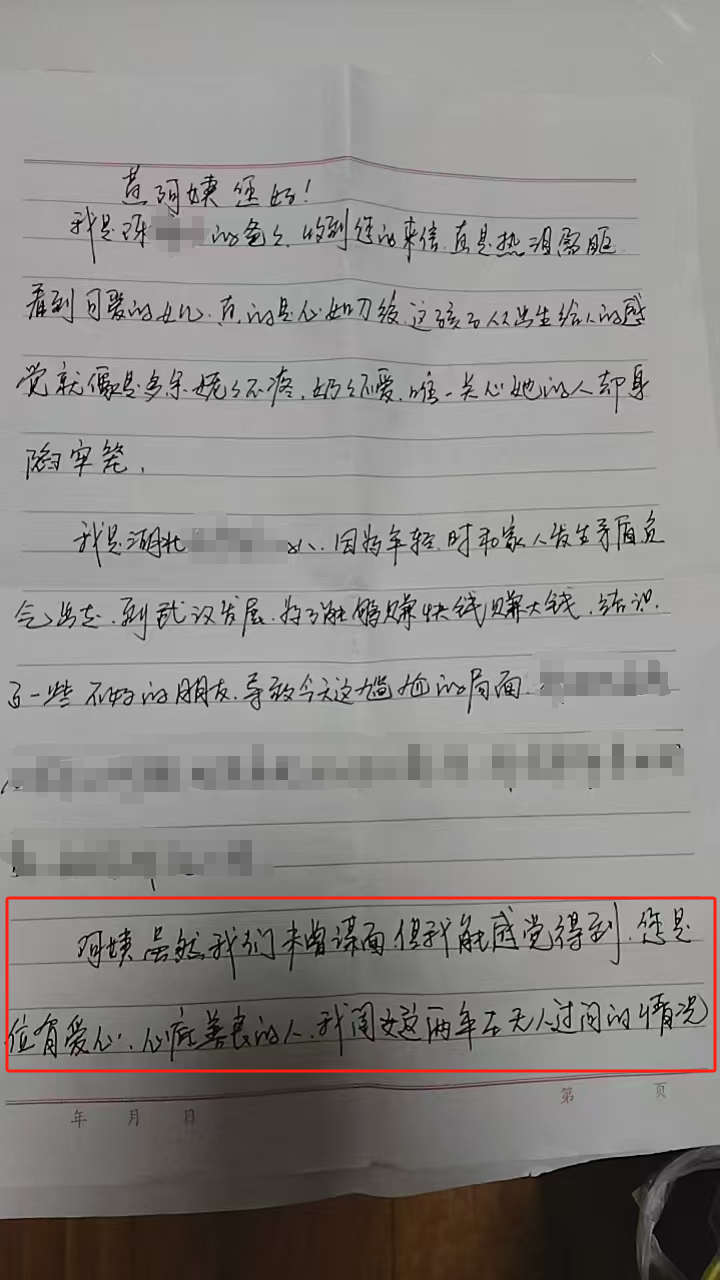 黄阿姨您好!
我是陈 的爸爸,收到您的来信,真是热泪盈眶
看到可爱的女儿,真的是心如刀绞,这孩子从出生给人的感
觉就像是多余,姥姥不疼,奶奶不爱,唯一关心她的人却身
陷牢笼,
我是湖北 人,因为年轻时和家人发生矛盾负
气出走,到武汉发展,为了能够赚快钱赚大钱,结识
了一些不好的朋友,导致今天这尴尬的局面
阿姨虽然我们未曾谋面但我能感觉得到,您是
位有爱心,心底善良的人,我闺女这两年在无人过问的情况
年 月 日
第 页